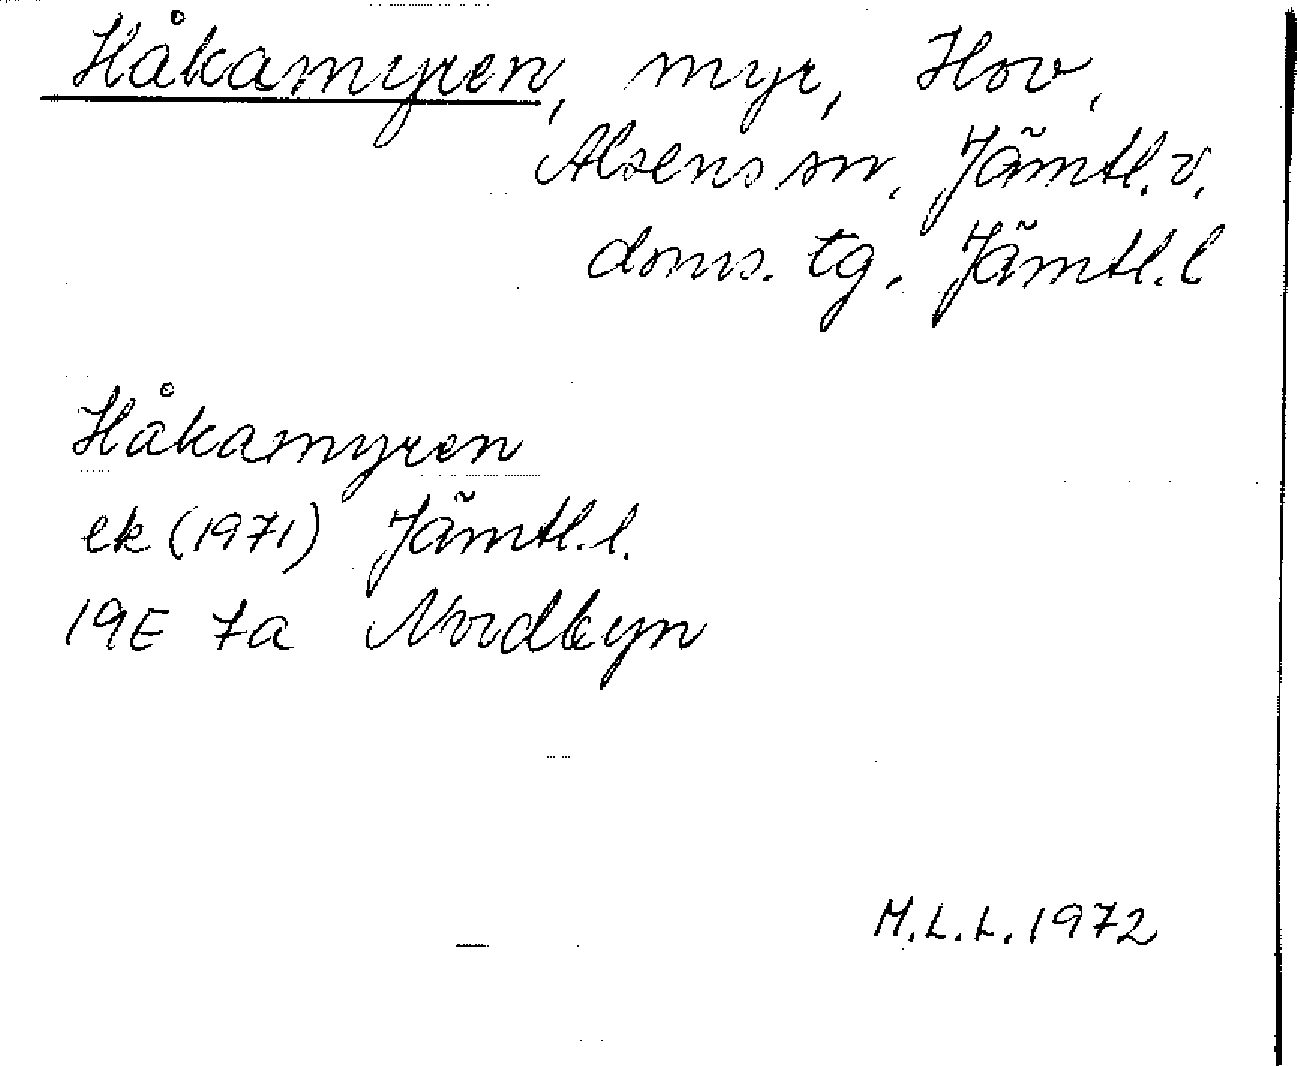 Håkamyren, myr, Hov,
Alsens sn, Jämtl. v.
doms. tg, Jämtl. l
Håkamyren
ek (1971) Jämtl. l.
19E 7a Nordbyn
M.L.L. 1972